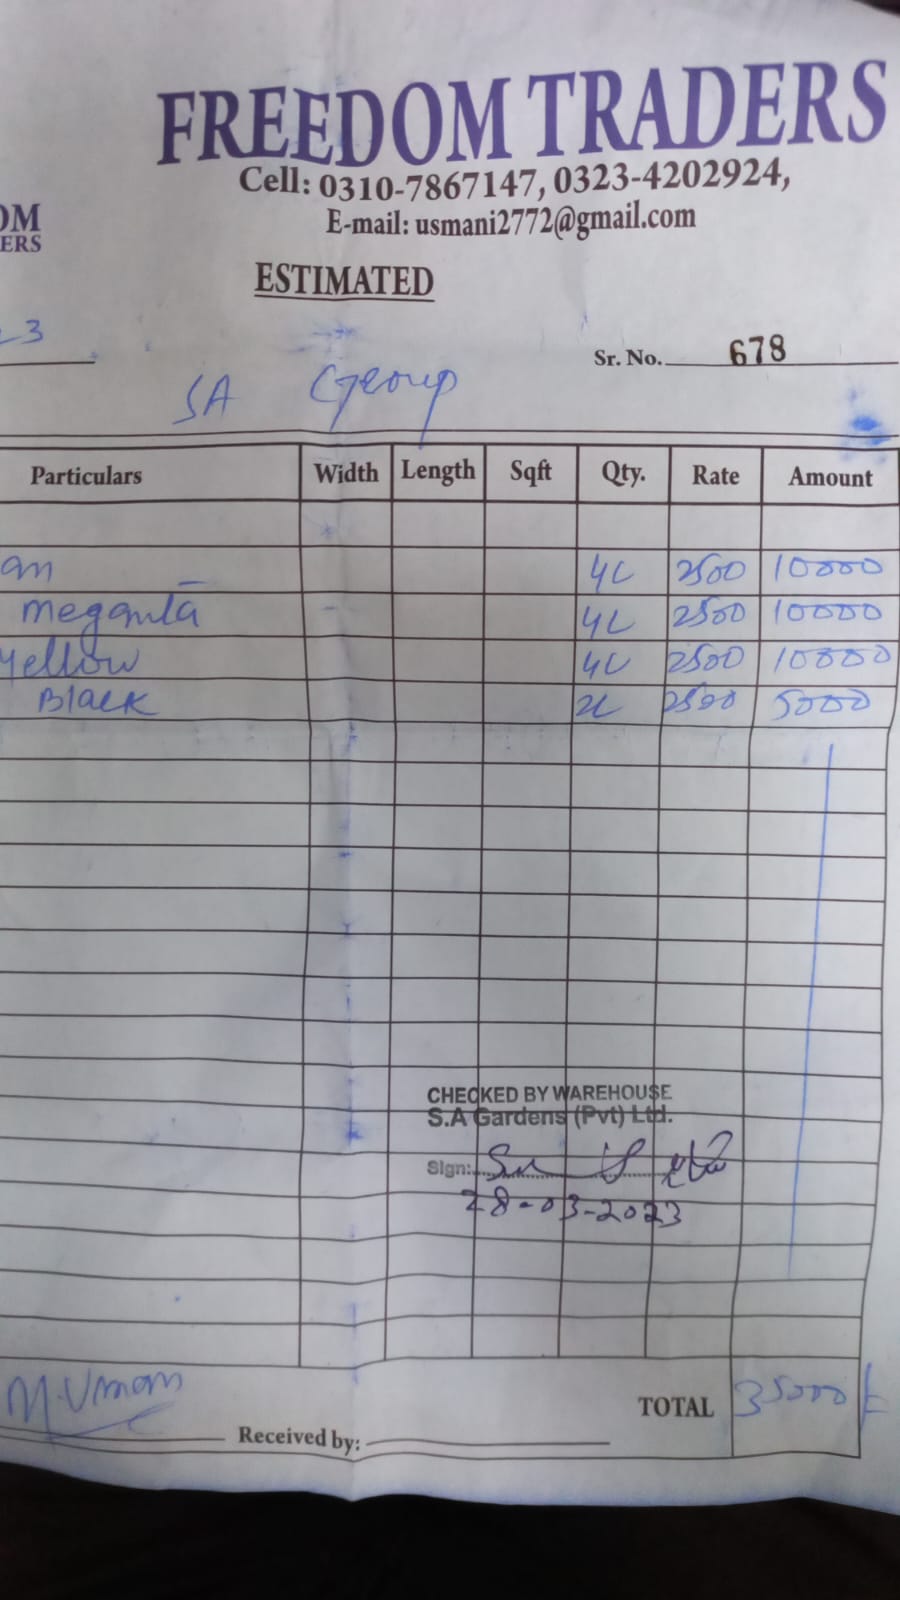 FREEDOM TRADERS
Cell: 0310-7867147, 0323-4202924,
E-mail: usmani2772@gmail.com
OM
ERS
ESTIMATED
23
Sr. No. 678
SA Group
Particulars Width Length Sqft Qty. Rate Amount
an 4L 2500 10000
meganta 4L 2500 10000
yellow 4L 2500 10000
Black 2L 2500 5000
CHECKED BY WAREHOUSE
S.A Gardens (Pvt) Ltd.
Sign:
28-03-2023
M. Uman
TOTAL 35000
Received by: